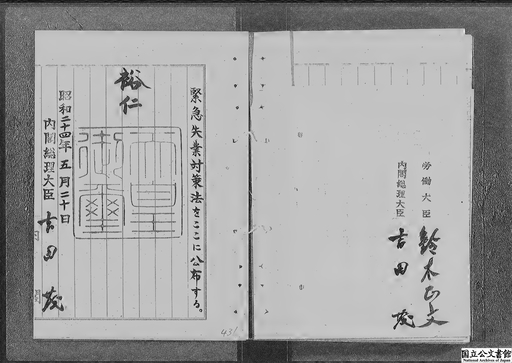 緊急失業対策法をここに公布する。
裕仁
天皇
御璽
昭和二十四年五月二十日
内閣総理大臣 吉田茂
内閣
431
労働大臣 鈴木正文
内閣総理大臣 吉田茂
国立公文書館
National Archives of Japan